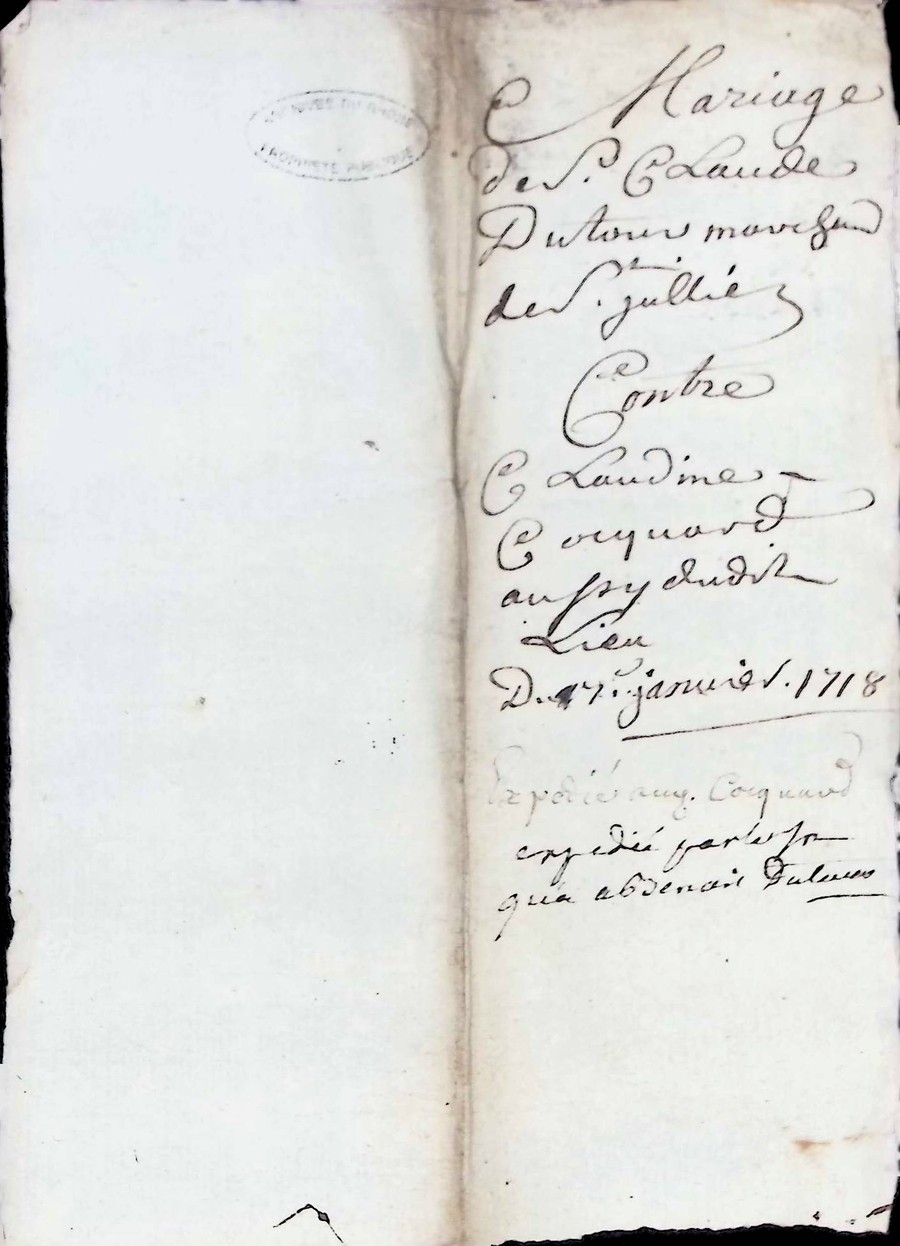 ARCHIVES DU RHONE
PROPRIETE PUBLIQUE
Mariage
de Sr. Claude
Dutour marchand
de St. jullie
Contre
Claudine
Cocquard
aussy dudit
Lieu
Du 17e. janvier. 1718
Expedié aug. Cocquard
expedié par
Dutour